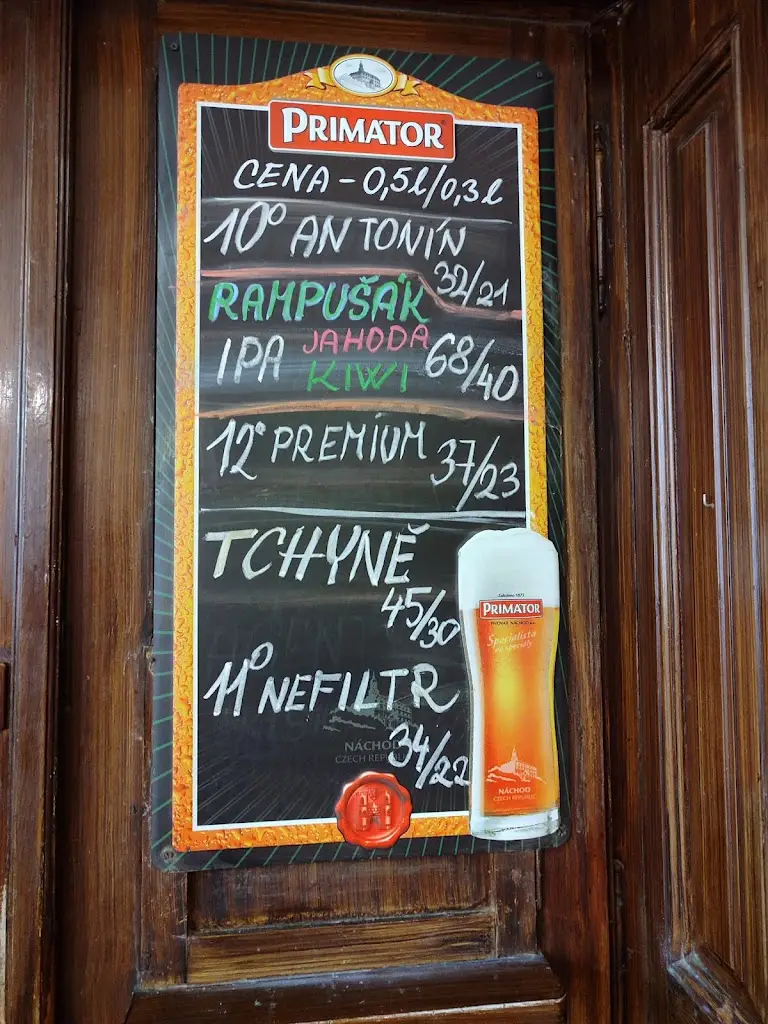 PRIMÁTOR
CENA - 0,5l/0,3l
10° ANTONÍN
32/21
RAMPUŠÁK
IPA JAHODA 68/40
KIWI
12° PREMIUM 37/23
TCHYNĚ
45/30
11° NEFILTR
34/22
NÁCHOD
CZECH REPUBLIC
PRIMÁTOR
PIVOVAR NÁCHOD a.s.
Specialista
na speciály
NÁCHOD
CZECH REPUBLIC